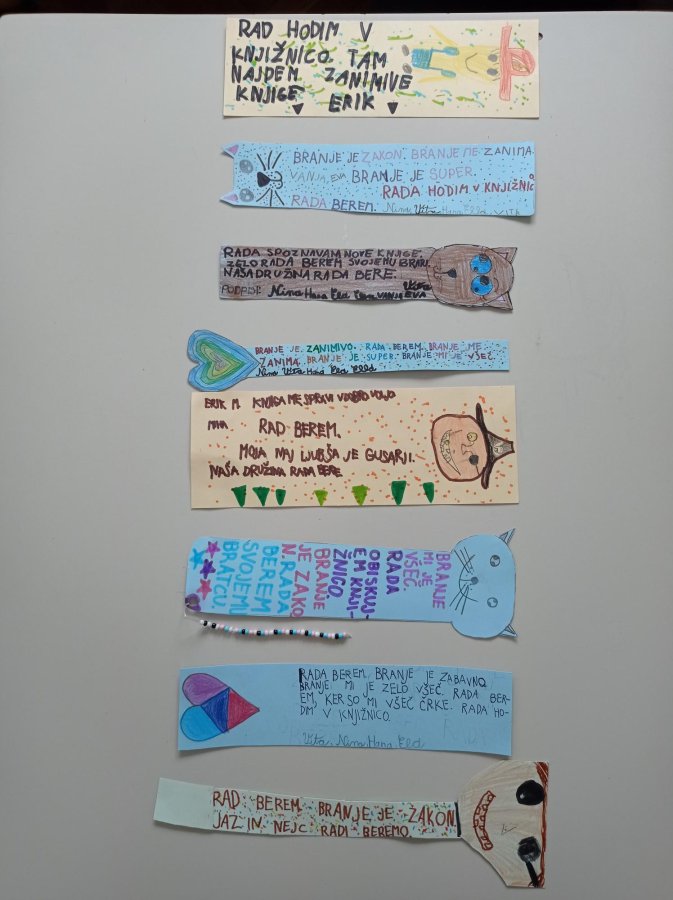 RAD HODIM V
KNJIŽNICO. TAM
NAJDEM ZANIMIVE
KNJIGE
ERIK
BRANJE JE ZAKON. BRANJE ME ZANIMA.
VANJA, EVA BRANJE JE SUPER.
RADA HODIM V KNJIŽNIC
RADA BEREM. Nina Vita Hana Ela VITA
RADA SPOZNAVAM NOVE KNJIGE.
ZELO RADA BEREM SVOJEMU BRATU.
NAŠA DRUŽINA RADA BERE.
Vita
PODPISI: Nina Hana Ela VANJA EVA
BRANJE JE ZANIMIVO. RADA BEREM. BRANJE ME
ZANIMA. BRANJE JE SUPER. BRANJE MI JE VŠEČ.
Nina Vita Hana Eva Ella
ERIK M. KNJIGA ME SPRAVI V DOBRO VOLJO
RAD BEREM.
MOJA NAJ LJUBŠA JE GUSARJI.
NAŠA DRUŽINA RADA BERE
BRANJE
MI JE
VŠEČ.
RADA
OBISKUJ-
EM KNJI-
ŽNICO.
BRANJE
JE ZAKO
N. RADA
BEREM
SVOJEMU
BRATCU.
RADA BEREM. BRANJE JE ZABAVNO.
BRANJE MI JE ZELO VŠEČ. RADA BER-
EM, KER SO MI VŠEČ ČRKE. RADA HO-
DIM V KNJIŽNICO.
Vita, Nina Hana Ela
RAD BEREM. BRANJE JE ZAKON.
JAZ IN NEJC RADI BEREMO.